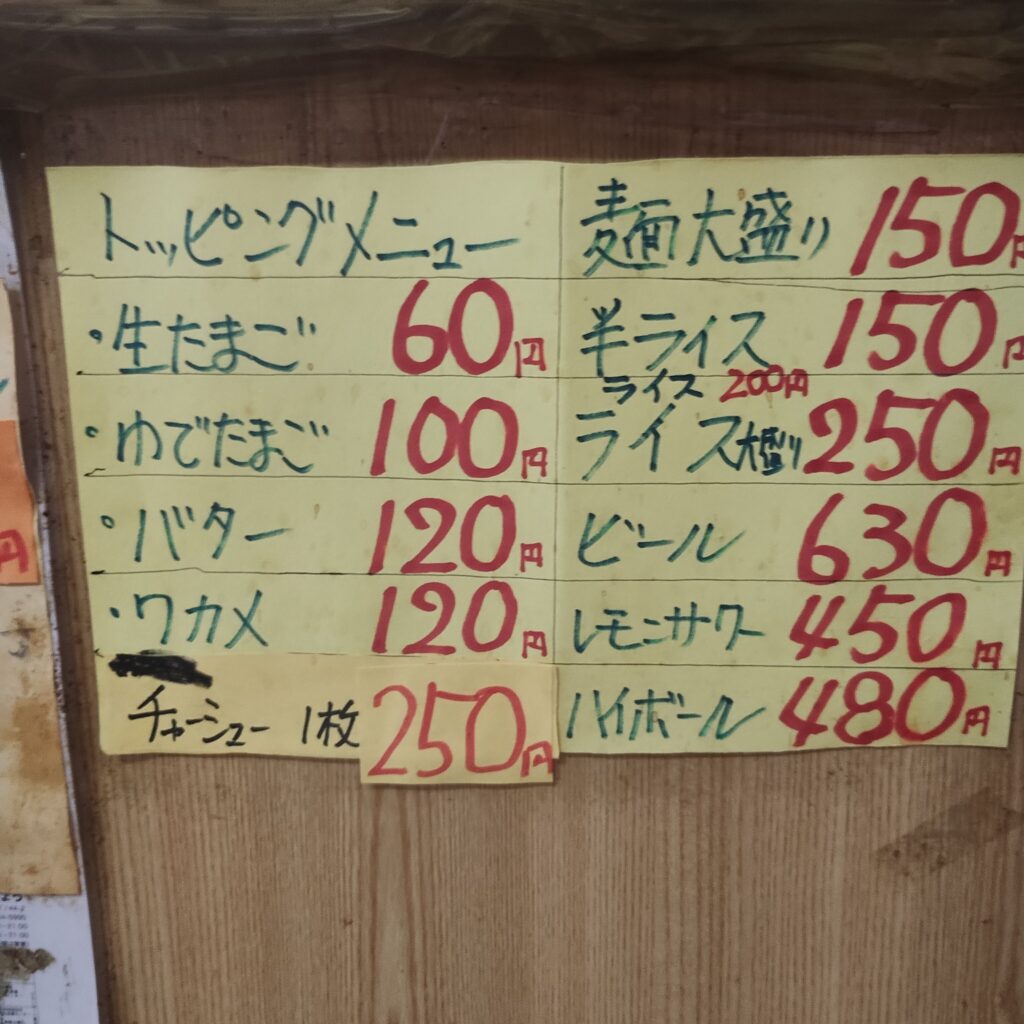 トッピングメニュー
・生たまご 60円
・ゆでたまご 100円
・バター 120円
・ワカメ 120円
チャーシュー 1枚 250円
麺大盛り 150円
半ライス 150円
ライス 200円
ライス大盛り 250円
ビール 630円
レモンサワー 450円
ハイボール 480円
円